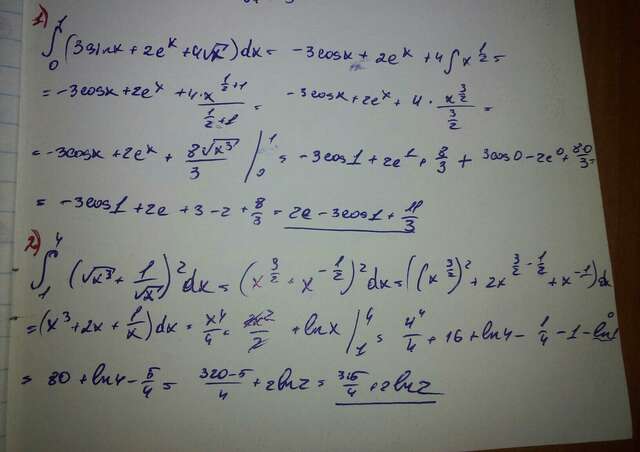 1)
∫₀¹ (3sinx + 2eˣ + 4√x) dx = -3cosx + 2eˣ + 4∫x^(1/2) =
= -3cosx + 2eˣ + 4·x^(1/2+1)/(1/2+1) = -3cosx + 2eˣ + 4·x^(3/2)/(3/2) =
= -3cosx + 2eˣ + 8√x³/3 |₀¹ = -3cos1 + 2e¹ + 8/3 + 3cos0 - 2e⁰ + 8·0/3 =
= -3cos1 + 2e + 3 - 2 + 8/3 = 2e - 3cos1 + 11/3
2)
∫₁⁴ (√x³ + 1/√x)² dx = (x^(3/2) + x^(-1/2))² dx = ((x^(3/2))² + 2x^(3/2-1/2) + x⁻¹) dx
= (x³ + 2x + 1/x) dx = x⁴/4 + 2x²/2 + lnx |₁⁴ = 4⁴/4 + 16 + ln4 - 1/4 - 1 - ln1
= 80 + ln4 - 5/4 = 320-5/4 + 2ln2 = 315/4 + 2ln2